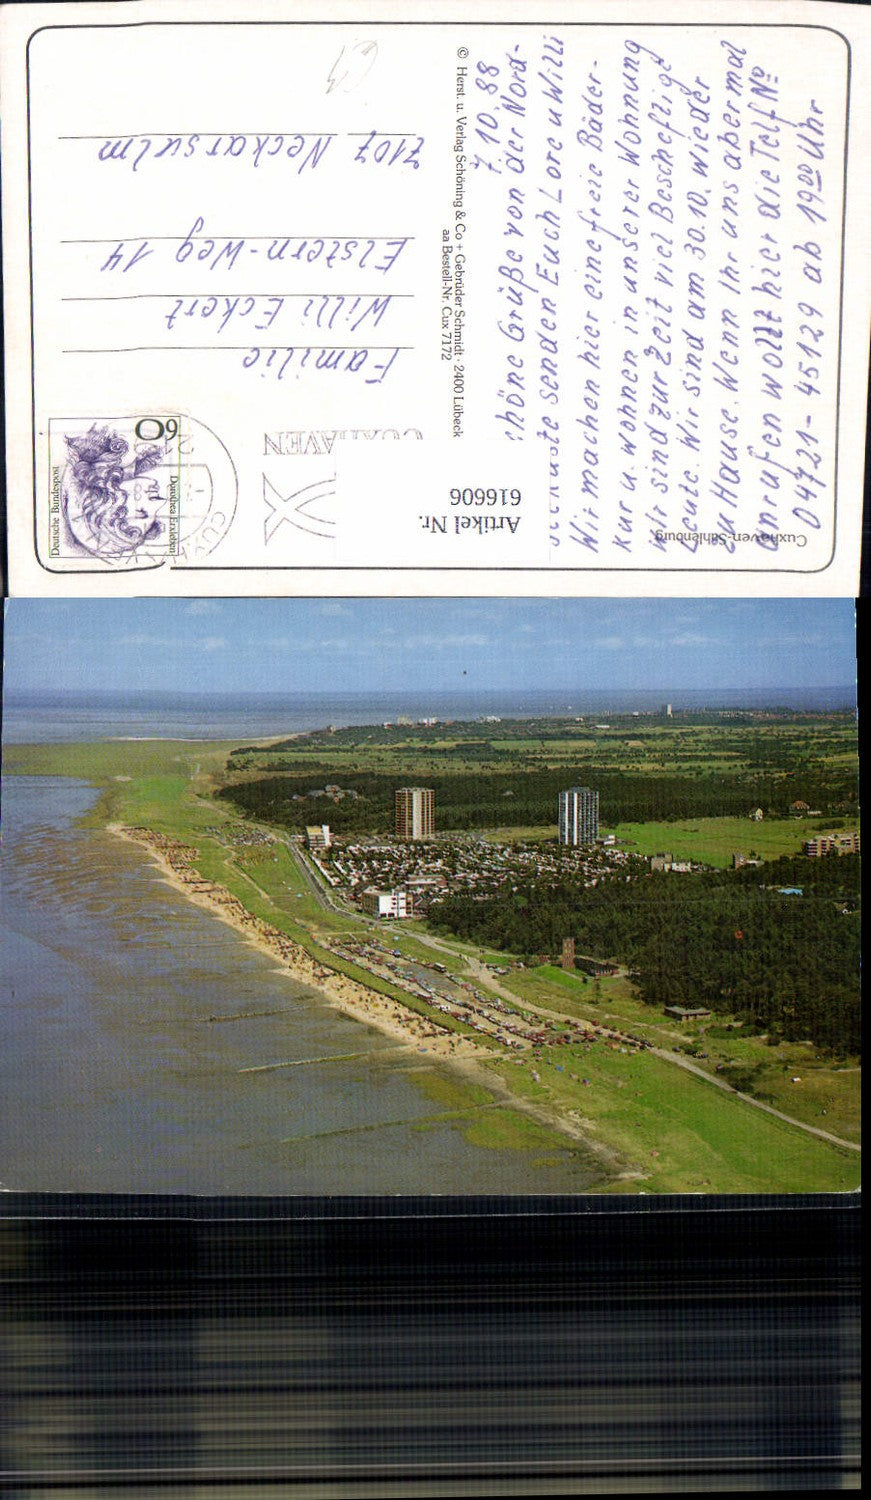 7. 10. 88
chöne Grüße von der Nord-
seeküste senden Euch Lore u Willi
Wir machen hier eine freie Bäder-
Kur u. wohnen in unserer Wohnung
wir sind zur Zeit viel Bescheftigt
Leute. Wir sind am 30.10. wieder
zu Hause. Wenn Ihr uns abermal
anrufen wollt hier die Telf №
04721-45129 ab 19⁰⁰ Uhr
Cuxhaven-Sahlenburg
© Herst. u. Verlag Schöning & Co + Gebrüder Schmidt · 2400 Lübeck
aa Bestell-Nr. Cux 7172
Artikel Nr.
616606
Deutsche Bundespost
60
Dorothea Erxleben
CUXHAVEN
CUXHAVEN
Familie
Willi Eckert
Elstern-Weg 14
7107 Neckarsulm